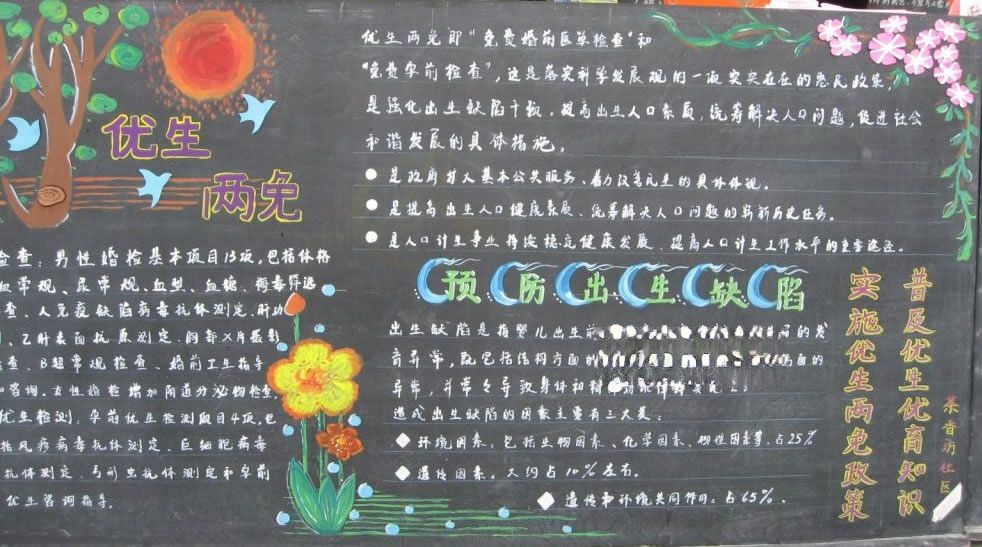 优生
两免
查：男性婚检基本项目13项，包括体格
常规、尿常规、血型、血糖、梅毒筛选
查、人免疫缺陷病毒抗体测定、肝功
、乙肝表面抗原测定、胸部X片摄影
查、B超常规检查、婚前卫生指导
咨询。女性婚检增加阴道分泌物检查
优生检测：孕前优生检测项目4项，包
括风疹病毒抗体测定、巨细胞病毒
抗体测定、弓形虫抗体测定和孕前
优生咨询指导。
优生两免即“免费婚前医学检查”和
“免费孕前检查”，这是落实科学发展观的一项实实在在的惠民政策，
是强化出生缺陷干预，提高出生人口素质，统筹解决人口问题，促进社会
和谐发展的具体措施。
是政府扩大基本公共服务、着力改善民生的具体体现。
是提高出生人口健康素质、统筹解决人口问题的崭新历史任务。
是人口计生事业持续稳定健康发展、提高人口计生工作水平的重要途径。
预防出生缺陷
出生缺陷是指婴儿出生前 的发
育异常，既包括结构方面的 方面的
异常，异常会导致身体和
造成出生缺陷的因素主要有三大类：
环境因素。包括生物因素、化学因素、物理因素等，占25%
遗传因素。大约占10%左右。
遗传和环境共同作用。占65%。
普及优生优育知识
实施优生两免政策
社区